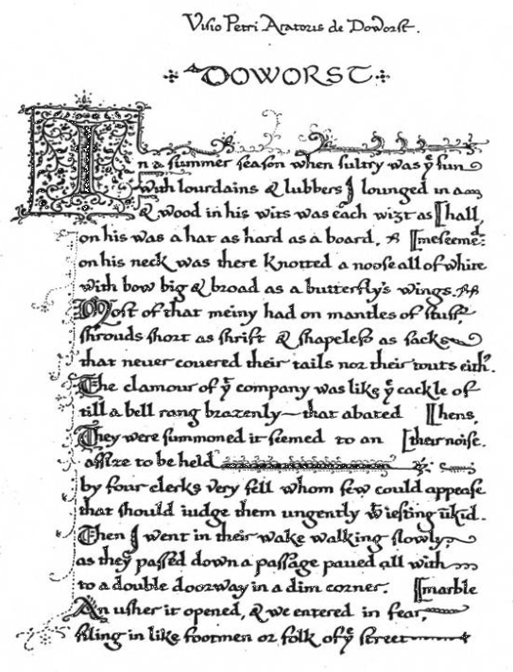 Visio Petri Aratoris de Doworst.
DOWORST
In a summer season when sultry was yͤ sun
with lourdains & lubbers I lounged in a
& wood in his wits was each wiȝt as [hall,
on his was a hat as hard as a board, [meseemeᵈ:
on his neck was there knotted a noose all of white
with bow big & broad as a butterfly's wings.
Most of that meiny had on mantles of stuff,
shrouds short as shrift & shapeless as sacks
that never covered their tails nor their touts eith'.
The clamour of yͤ company was like yͤ cackle of
till a bell rang brazenly — that abated [hens,
They were summoned it seemed to an [their noise.
assize to be held
by four clerks very fell whom few could appease
that should iudge them ungently wͭ iesting ūkid.
Then I went in their wake walking slowly,
as they passed down a passage paued all with
to a double doorway in a dim corner. [marble
An usher it opened, & we entered in fear,
filing in like footmen or folk of yͤ street